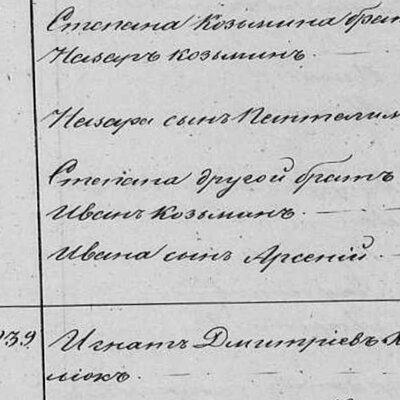 Степана Козьмина брат
Назаръ Козьминъ.
Назара сынъ Пантелим
Степана другой братъ
Иванъ Козьминъ.
Ивана сынъ Арсеній.
939 Игнатъ Дмитріевъ
люкъ.